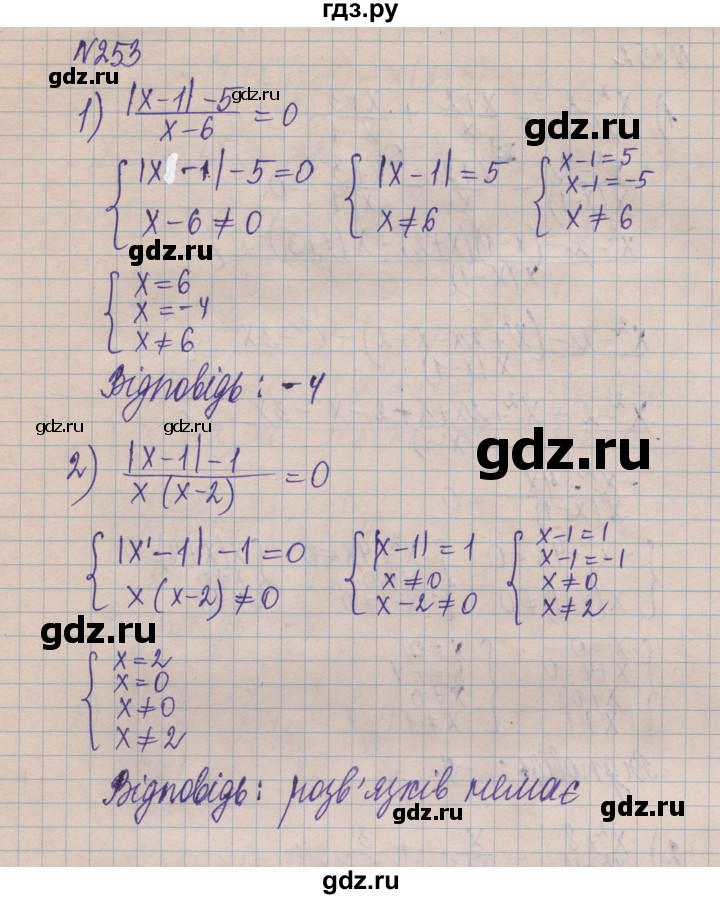 гдз.ру
№253
gdz.ru
1) (|x-1|-5)/(x-6) = 0
gdz.ru
gdz.ru
{ |x-1|-5=0 { |x-1|=5 { x-1=5
x-1=-5
x-6≠0 x≠6 x≠6
gdz.ru
{ x=6
x=-4
x≠6
Відповідь: -4
gdz.ru gdz.ru
gdz.ru
2) (|x-1|-1)/(x(x-2)) = 0
{ |x-1|-1=0 { |x-1|=1 { x-1=1
x-1=-1
x(x-2)≠0 x≠0 x≠0
x-2≠0 x≠2
gdz.ru gdz.ru
{ x=2
x=0
x≠0
x≠2
Відповідь: розв'язків немає
gdz.ru gdz.ru
gdz.ru